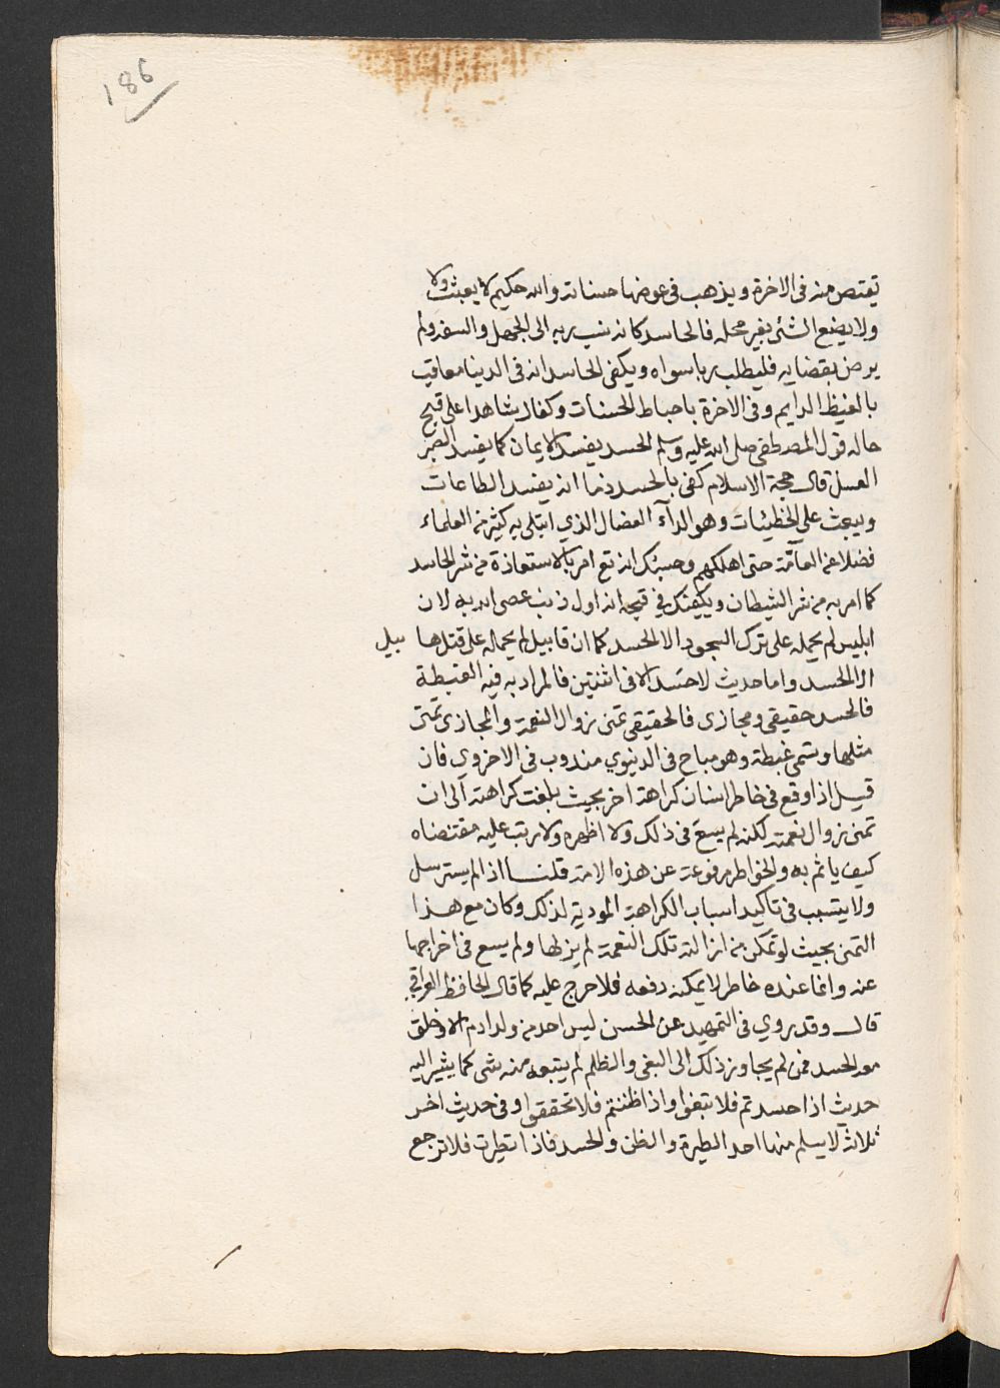 186
تقتص منه فى الاخرة ويذهب فى عوضها حسناته والله حكيم لا يعبث ولا
ولا يضع الشئ بغير محله فالحاسد كانه نسب ربه الى الجهل والسفه ولم
يرض بقضايه فليطلب ربا سواه ويكفى الحاسد انه فى الدنيا معاقب
بالغيظ الدايم وفى الاخرة باحباط الحسنات وكفاك شاهدا على قبح
حاله قول المصطفى صلى الله عليه وسلم الحسد يفسد الايمان كما يفسد الصبر
العسل قال حجة الاسلام كفى بالحسد ذما انه يفسد الطاعات
ويبعث على الخطيئات وهو الداء العضال الذي ابتلى به كثير من العلماء
فضلا عن العامة حتى اهلكهم وحسبك انه تع امر بالاستعاذة من شر الحاسد
كما امر به من شر الشيطان ويكفيك فى قبحه انه اول ذنب عصى الله به لان
ابليس لم يحمله على ترك السجود الا الحسد كما ان قابيل لم يحمله على قتل هابيل
الا الحسد واما حديث لا حسد الا فى اثنتين فالمراد به فيه الغبطة
فالحسد حقيقى ومجازى فالحقيقى تمنى زوال النعمة والمجازى تمنى
مثلها وتسمى غبطة وهو مباح فى الدنيوي مندوب فى الاخروي فان
قيل اذا وقع فى خاطر انسان كراهة اخر بحيث بلغت كراهته الى ان
تمنى زوال نعمته لكنه لم يسع فى ذلك ولا اظهره ولا رتب عليه مقتضاه
كيف ياثم به والخواطر مرفوعة عن هذه الامة قلنا اذا لم يسترسل
ولا يتسبب فى تاكيد اسباب الكراهة المودية لذلك وكان مع هذا
التمنى بحيث لو تمكن من ازالة تلك النعمة لم يزلها ولم يسع فى اخراجها
عنه وانما عنده خاطر لا يمكنه دفعه فلا حرج عليه كما قال الحافظ العراقي
قال وقد روي فى التمهيد عن الحسن ليس احد من ولد ادم الا وخلق
معه الحسد فمن لم يجاوز ذلك الى البغى والظلم لم يتبعه منه شى كما يشير اليه
حديث اذا حسدتم فلا تبغوا واذا ظننتم فلا تحققوا وفى حديث اخر
ثلاث لا يسلم منها احد الطيرة والظن والحسد فاذا تطيرت فلا ترجع